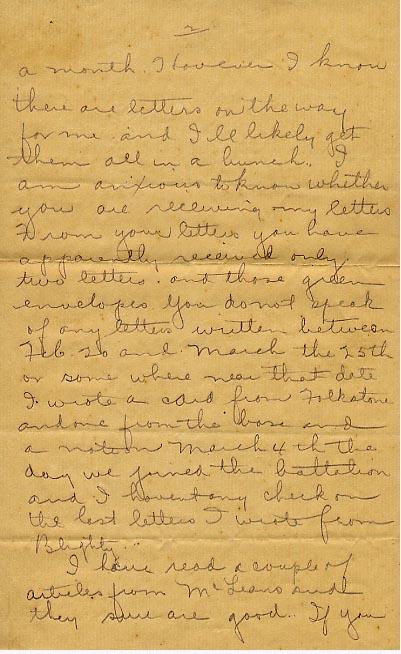 2
a month. However I know
there are letters on the way
for me and I'll likely get
them all in a bunch. I
am anxious to know whether
you are receiving my letters
From your letters you have
apparently received only
two letters. and those green
envelopes You do not speak
of any letters written between
Feb. 20 and March the 25th
or some where near that date
I wrote a card from Folkstone
and one from the base and
a note on March 4th the
day we joined the battalion
and I havent any check on
the last letters I wrote from
Blighty.
I have read a couple of
articles from McLeans and
they sure are good. If you